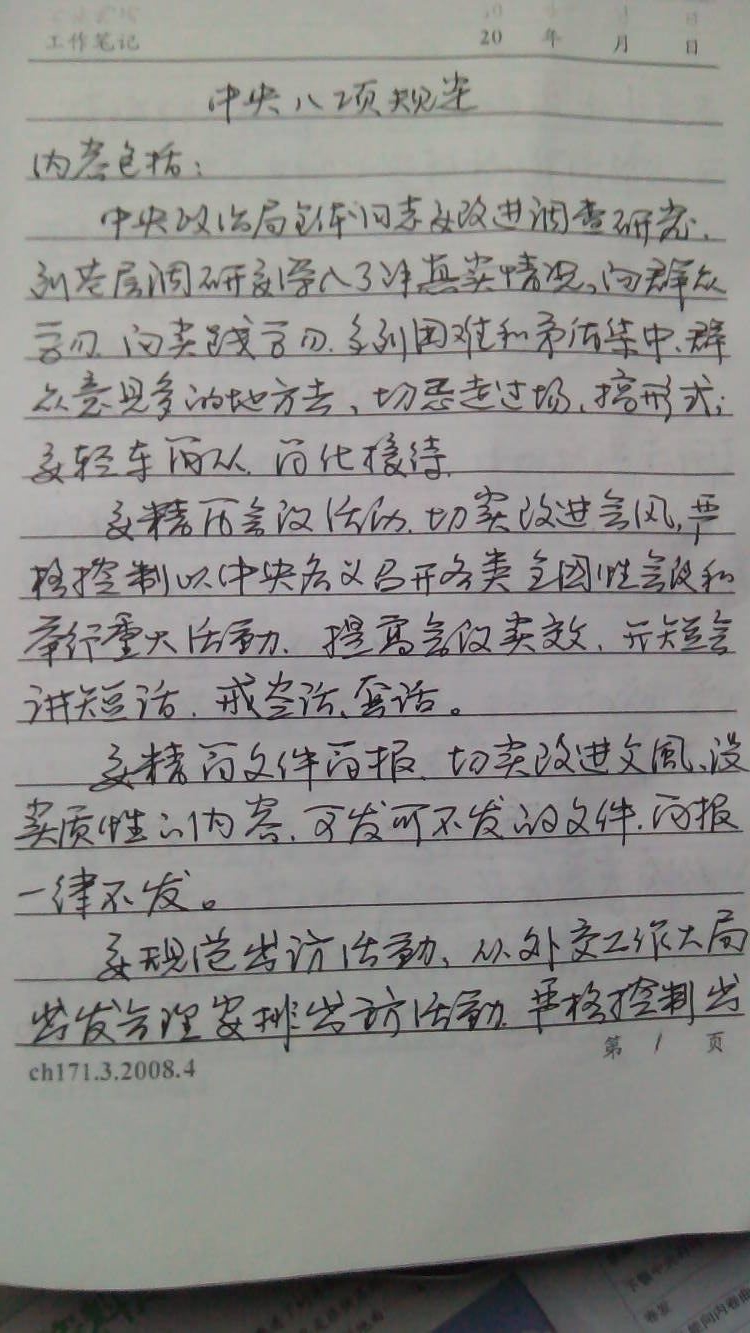 工作笔记 20 年 月 日
中央八项规定
内容包括：
中央政治局全体同志要改进调查研究，
到基层调研要深入了解真实情况。向群众
学习、向实践学习。多到困难和矛盾集中、群
众意见多的地方去，切忌走过场、搞形式；
要轻车简从、简化接待
要精简会议活动，切实改进会风，严
格控制以中央名义召开各类全国性会议和
举行重大活动，提高会议实效，开短会
讲短话，戒空话、套话。
要精简文件简报，切实改进文風、没
实质性的内容、可发可不发的文件、简报
一律不发。
要规范出访活动，从外交工作大局
出发合理安排出访活动，严格控制出
ch171.3.2008.4 第 1 页